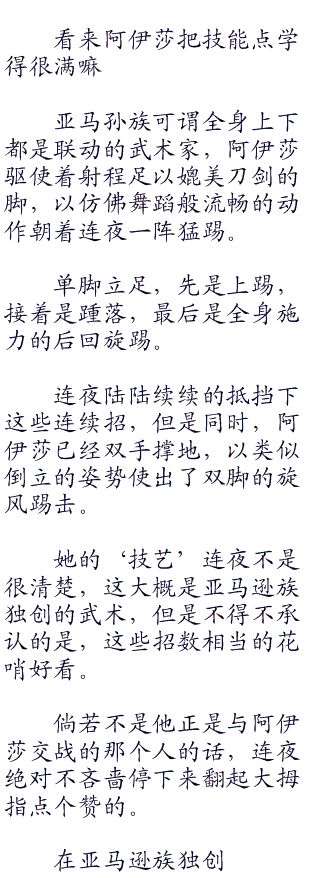 看来阿伊莎把技能点学
得很满嘛
亚马孙族可谓全身上下
都是联动的武术家，阿伊莎
驱使着射程足以媲美刀剑的
脚，以仿佛舞蹈般流畅的动
作朝着连夜一阵猛踢。
单脚立足，先是上踢，
接着是踵落，最后是全身施
力的后回旋踢。
连夜陆陆续续的抵挡下
这些连续招，但是同时，阿
伊莎已经双手撑地，以类似
倒立的姿势使出了双脚的旋
风踢击。
她的‘技艺’连夜不是
很清楚，这大概是亚马逊族
独创的武术，但是不得不承
认的是，这些招数相当的花
哨好看。
倘若不是他正是与阿伊
莎交战的那个人的话，连夜
绝对不吝啬停下来翻起大拇
指点个赞的。
在亚马逊族独创